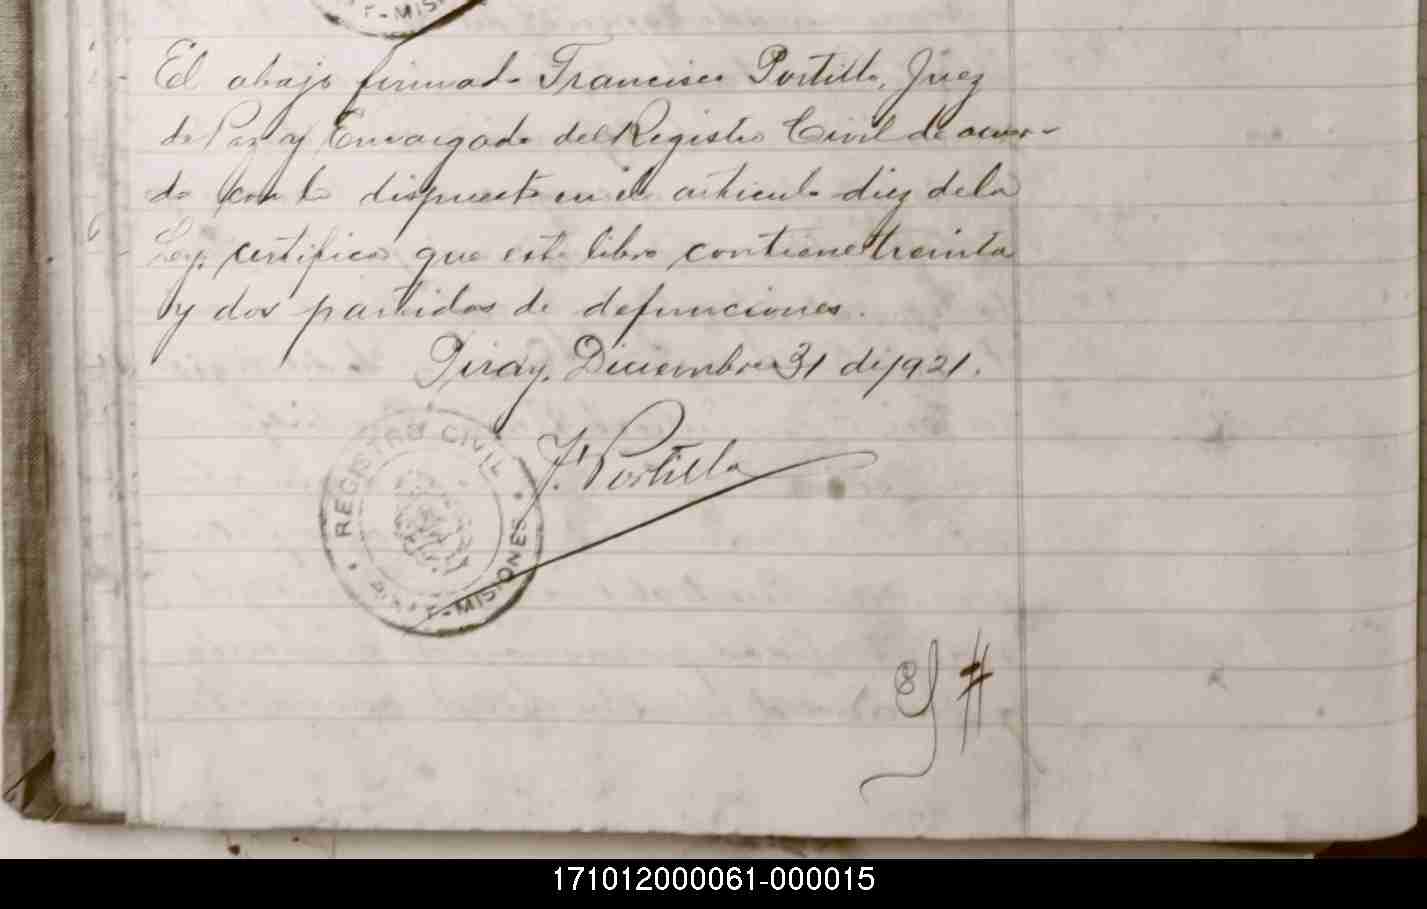 F-MIS
El abajo firmado Francisco Portillo, Juez
de Paz y Encargado del Registro Civil de acuer-
do con lo dispuesto en el articulo diez de la
Ley, certifica que este libro contiene treinta
y dos partidas de defunciones.
Piray, Diciembre 31 de 1921.
F. Portillo
REGISTRO CIVIL
MISIONES
171012000061-000015